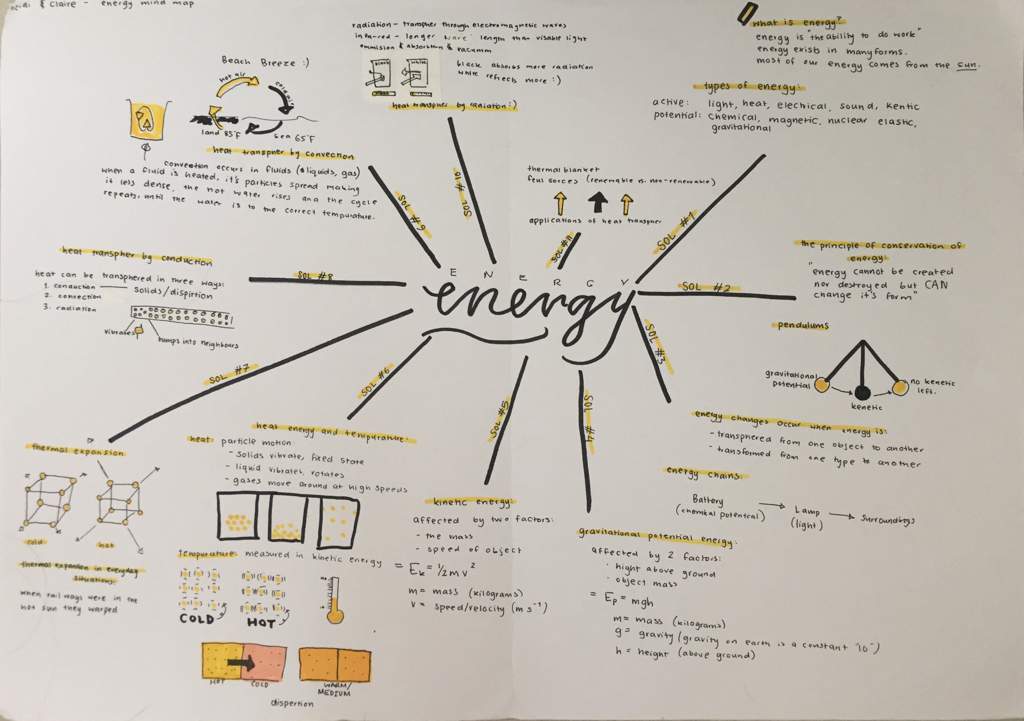 & Claire - energy mind map
what is energy?
energy is "the ability to do work"
energy exists in many forms.
most of our energy comes from the sun.
types of energy:
active: light, heat, electrical, sound, kentic
potential: chemical, magnetic, nuclear elastic,
gravitational
SOL #1
radiation - transpher through electromagnetic waves
infra-red - longer wave length than visable light
emmision & absorbtion & vacumm
black absorbs more radiation
white reflects more :)
heat transpher by radiation :)
SOL #10
Beach Breeze :)
hot air
cold air
land 85°F
sea 65°F
heat transpher by convection
convection occurs in fluids (liquids, gas)
when a fluid is heated, it's particles spread making
it less dense, the hot water rises and the cycle
repeats, until the warm is to the correct tempurature.
SOL #9
thermal blanket
feul sorces (renewable vs. non-renewable)
applications of heat transpher
SOL #11
ENERGY
energy
the principle of conservation of
energy:
"energy cannot be created
nor destroyed but CAN
change it's form"
SOL #2
pendulums
gravitational
potential
kenetic
no kenetic
left.
energy changes occur when energy is:
- transphered from one object to another
- transformed from one type to another
energy chains:
Battery
(chemical potential)
Lamp
(light)
Surroundings
SOL #3
heat transpher by conduction
heat can be transphered in three ways:
1. conduction
solids/dispirtion
2. convection
3. radiation
vibrates
bumps into neighbours
SOL #8
SOL #7
thermal expansion
cold
hot
thermal expansion in everyday
situations
when railways were in the
hot sun they warped
SOL #6
heat energy and tempurature:
heat: particle motion:
- solids vibrate, fixed state
- liquid vibrates, rotates
- gases move around at high speeds
tempurature: measured in kinetic energy
COLD
HOT
HOT
COLD
WARM/
MEDIUM
dispertion
SOL #5
kinetic energy:
affected by two factors:
- the mass
- speed of object
= Ek = 1/2 mv²
m = mass (kilograms)
v = speed/velocity (m s⁻¹)
SOL #4
gravitational potential energy:
affected by 2 factors:
· hight above ground
· object mass
= Ep = mgh
m = mass (kilograms)
g = gravity (gravity on earth is a constant "10")
h = height (above ground)